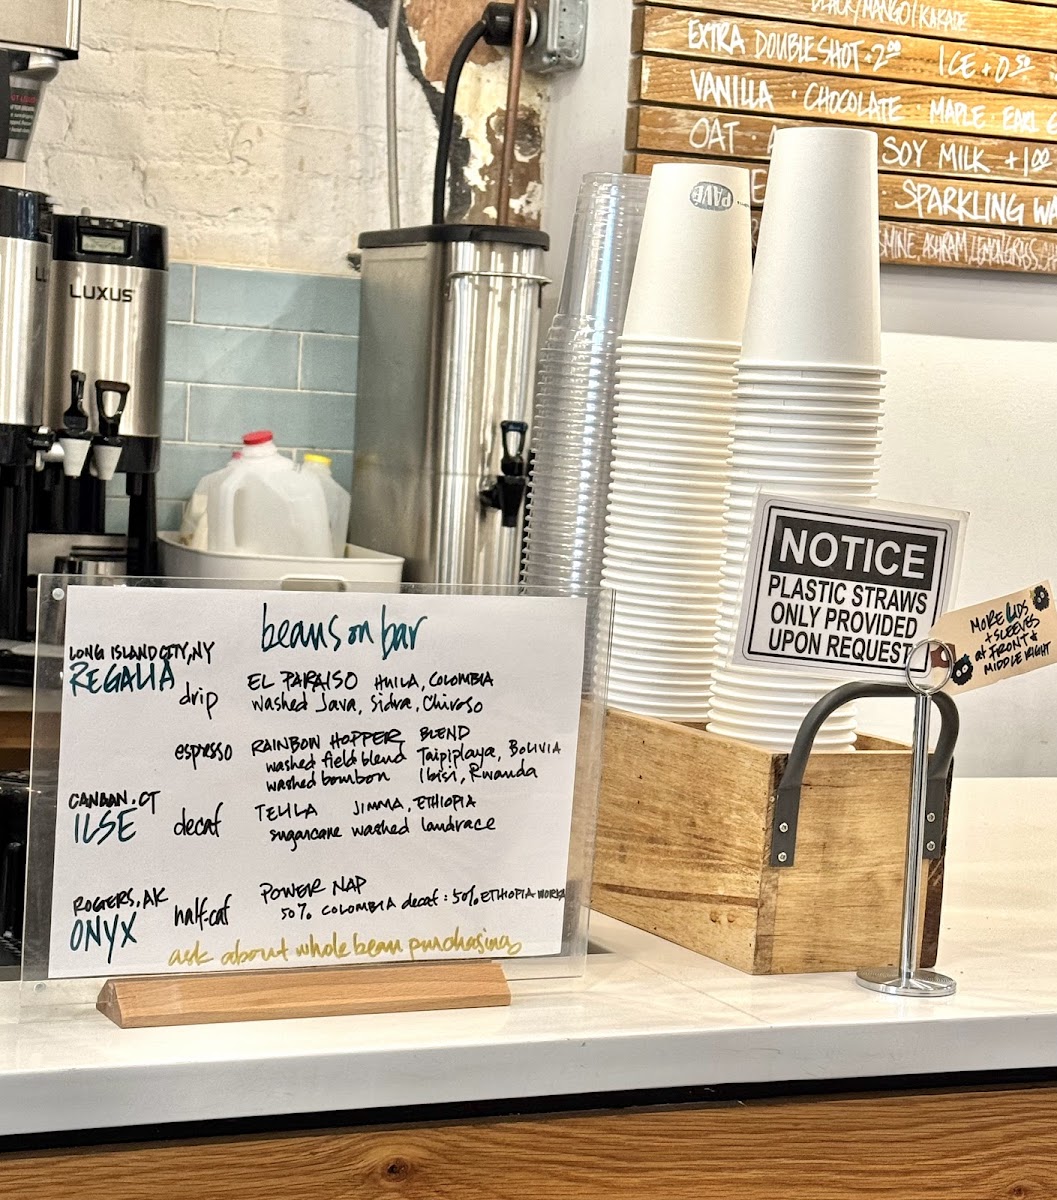 BLACK/MANGO/KARKADE
EXTRA DOUBLE SHOT + 2.00 ICE + 0.50
VANILLA · CHOCOLATE · MAPLE · EARL
OAT · SOY MILK +1.00
SPARKLING
LEMONGRASS
PAVÉ
LUXUS
NOTICE
PLASTIC STRAWS
ONLY PROVIDED
UPON REQUEST
MORE LIDS
+ SLEEVES
at FRONT &
MIDDLE RIGHT
beans on bar
LONG ISLAND CITY, NY
REGALIA
drip
EL PARAISO HUILA, COLOMBIA
washed Java, Sidra, Chiroso
espresso
RAINBOW HOPPER BLEND
washed field blend Taipiplaya, BOLIVIA
washed bourbon Ibisi, Rwanda
CANAAN, CT
ILSE
decaf
TELILA JIMMA, ETHIOPIA
sugarcane washed landrace
ROGERS, AK
ONYX
half-caf
POWER NAP
50% COLOMBIA decaf : 50% ETHIOPIA
ask about whole bean purchasing